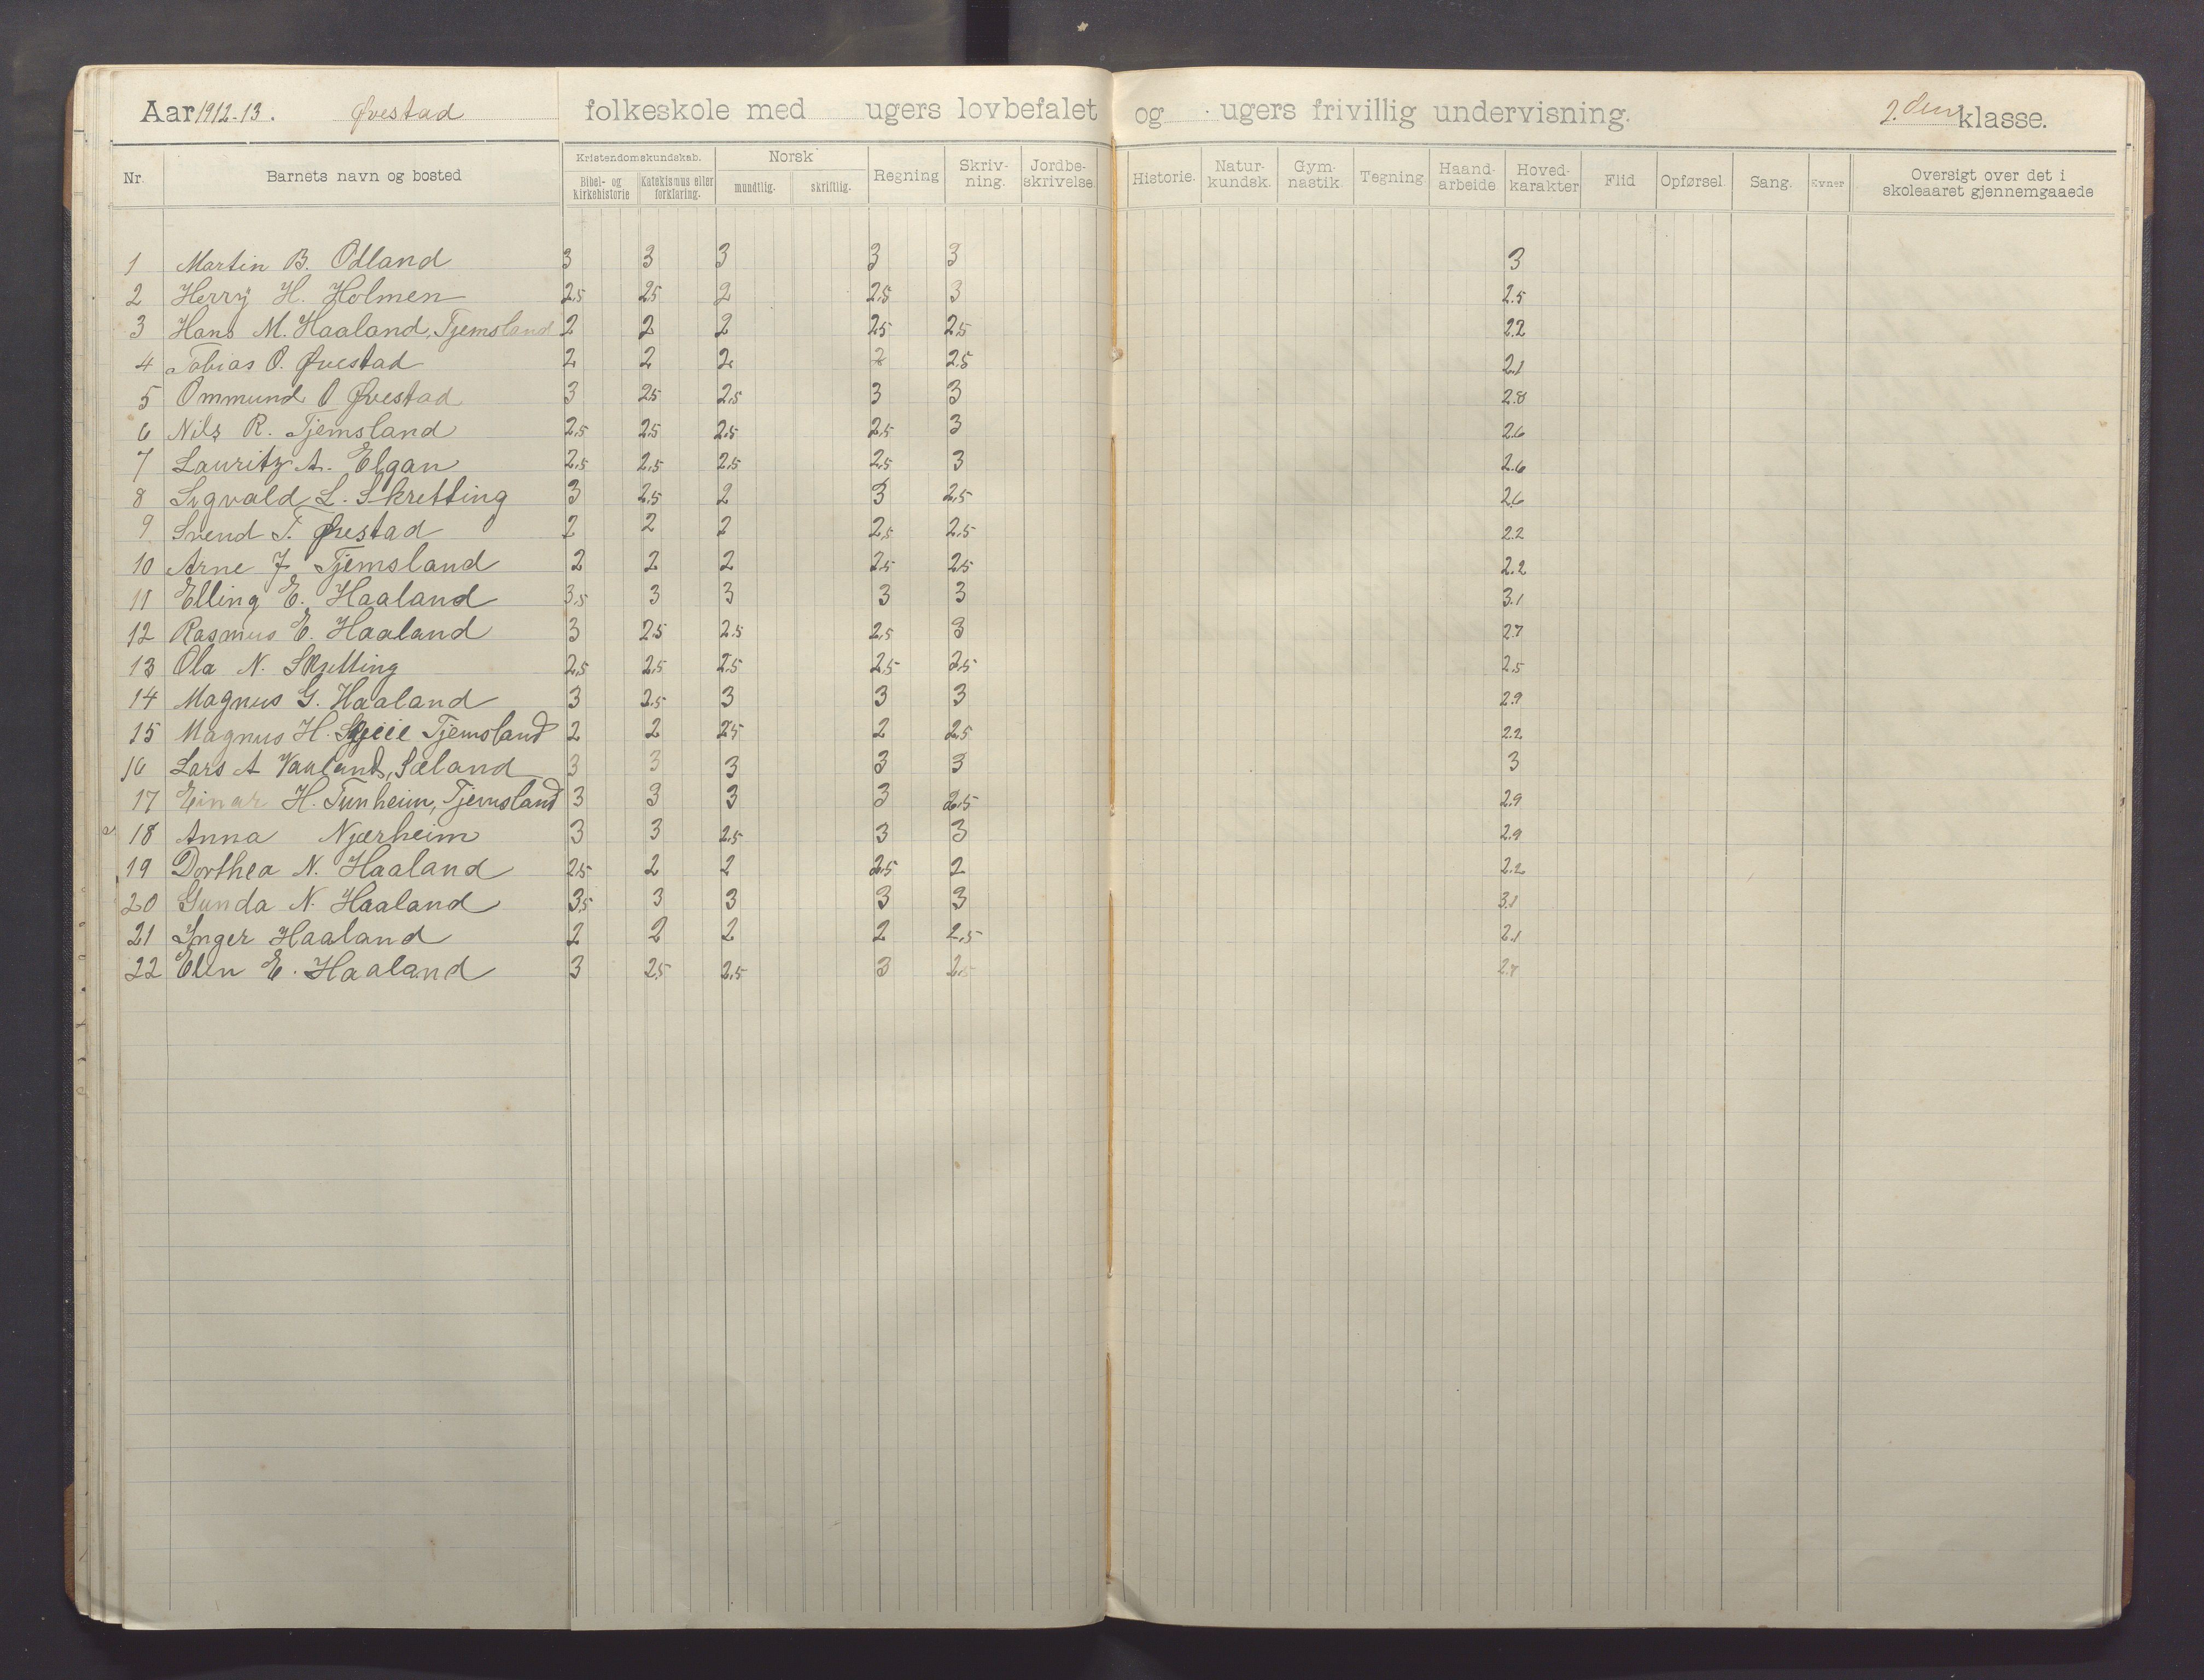 Aar 1912-13. Øvestad folkeskole med ugers lovbefalet og ugers frivillig undervisning. 2.den klasse.
Nr. Barnets navn og bosted Kristendomskundskab. Bibel- og kirkehistorie Katekismus eller forklaring. Norsk mundtlig. skriftlig. Regning Skriv-ning. Jordbe-skrivelse. Historie. Natur-kundsk. Gym-nastik. Tegning Haand-arbeide Hoved-karakter Flid Opførsel Sang. Evner Oversigt over det i skoleaaret gjennemgaaede
1 Martin B. Odland 3 3 3 3 3 3
2 Herry H. Holmen 2.5 2.5 2 2.5 3 2.5
3 Hans M. Haaland, Tjemsland 2 2 2 2.5 2.5 2.2
4 Tobias O. Øvestad 2 2 2 2 2.5 2.1
5 Ommund O Øvestad 3 2.5 2.5 3 3 2.8
6 Nils R. Tjemsland 2.5 2.5 2.5 2.5 3 2.6
7 Lauritz A. Elgan 2.5 2.5 2.5 2.5 3 2.6
8 Sigvald L. Skretting 3 2.5 2 3 2.5 2.6
9 Svend T. Øvestad 2 2 2 2.5 2.5 2.2
10 Arne J. Tjemsland 2 2 2 2.5 2.5 2.2
11 Elling E. Haaland 3.5 3 3 3 3 3.1
12 Rasmus E. Haaland 3 2.5 2.5 2.5 3 2.7
13 Ola N. Skretting 2.5 2.5 2.5 2.5 2.5 2.5
14 Magnus G. Haaland 3 2.5 3 3 3 2.9
15 Magnus H. Tjemsland 2 2 2.5 2 2.5 2.2
16 Lars A Vaaland, Sæland 3 3 3 3 3 3
17 Einar H. Tunheim, Tjemsland 3 3 3 3 2.5 2.9
18 Anna Njærheim 3 3 2.5 3 3 2.9
19 Dorthea N. Haaland 2.5 2 2 2.5 2 2.2
20 Gunda N. Haaland 3.5 3 3 3 3 3.1
21 Inger Haaland 2 2 2 2 2.5 2.1
22 Elen E. Haaland 3 2.5 2.5 3 2.5 2.7